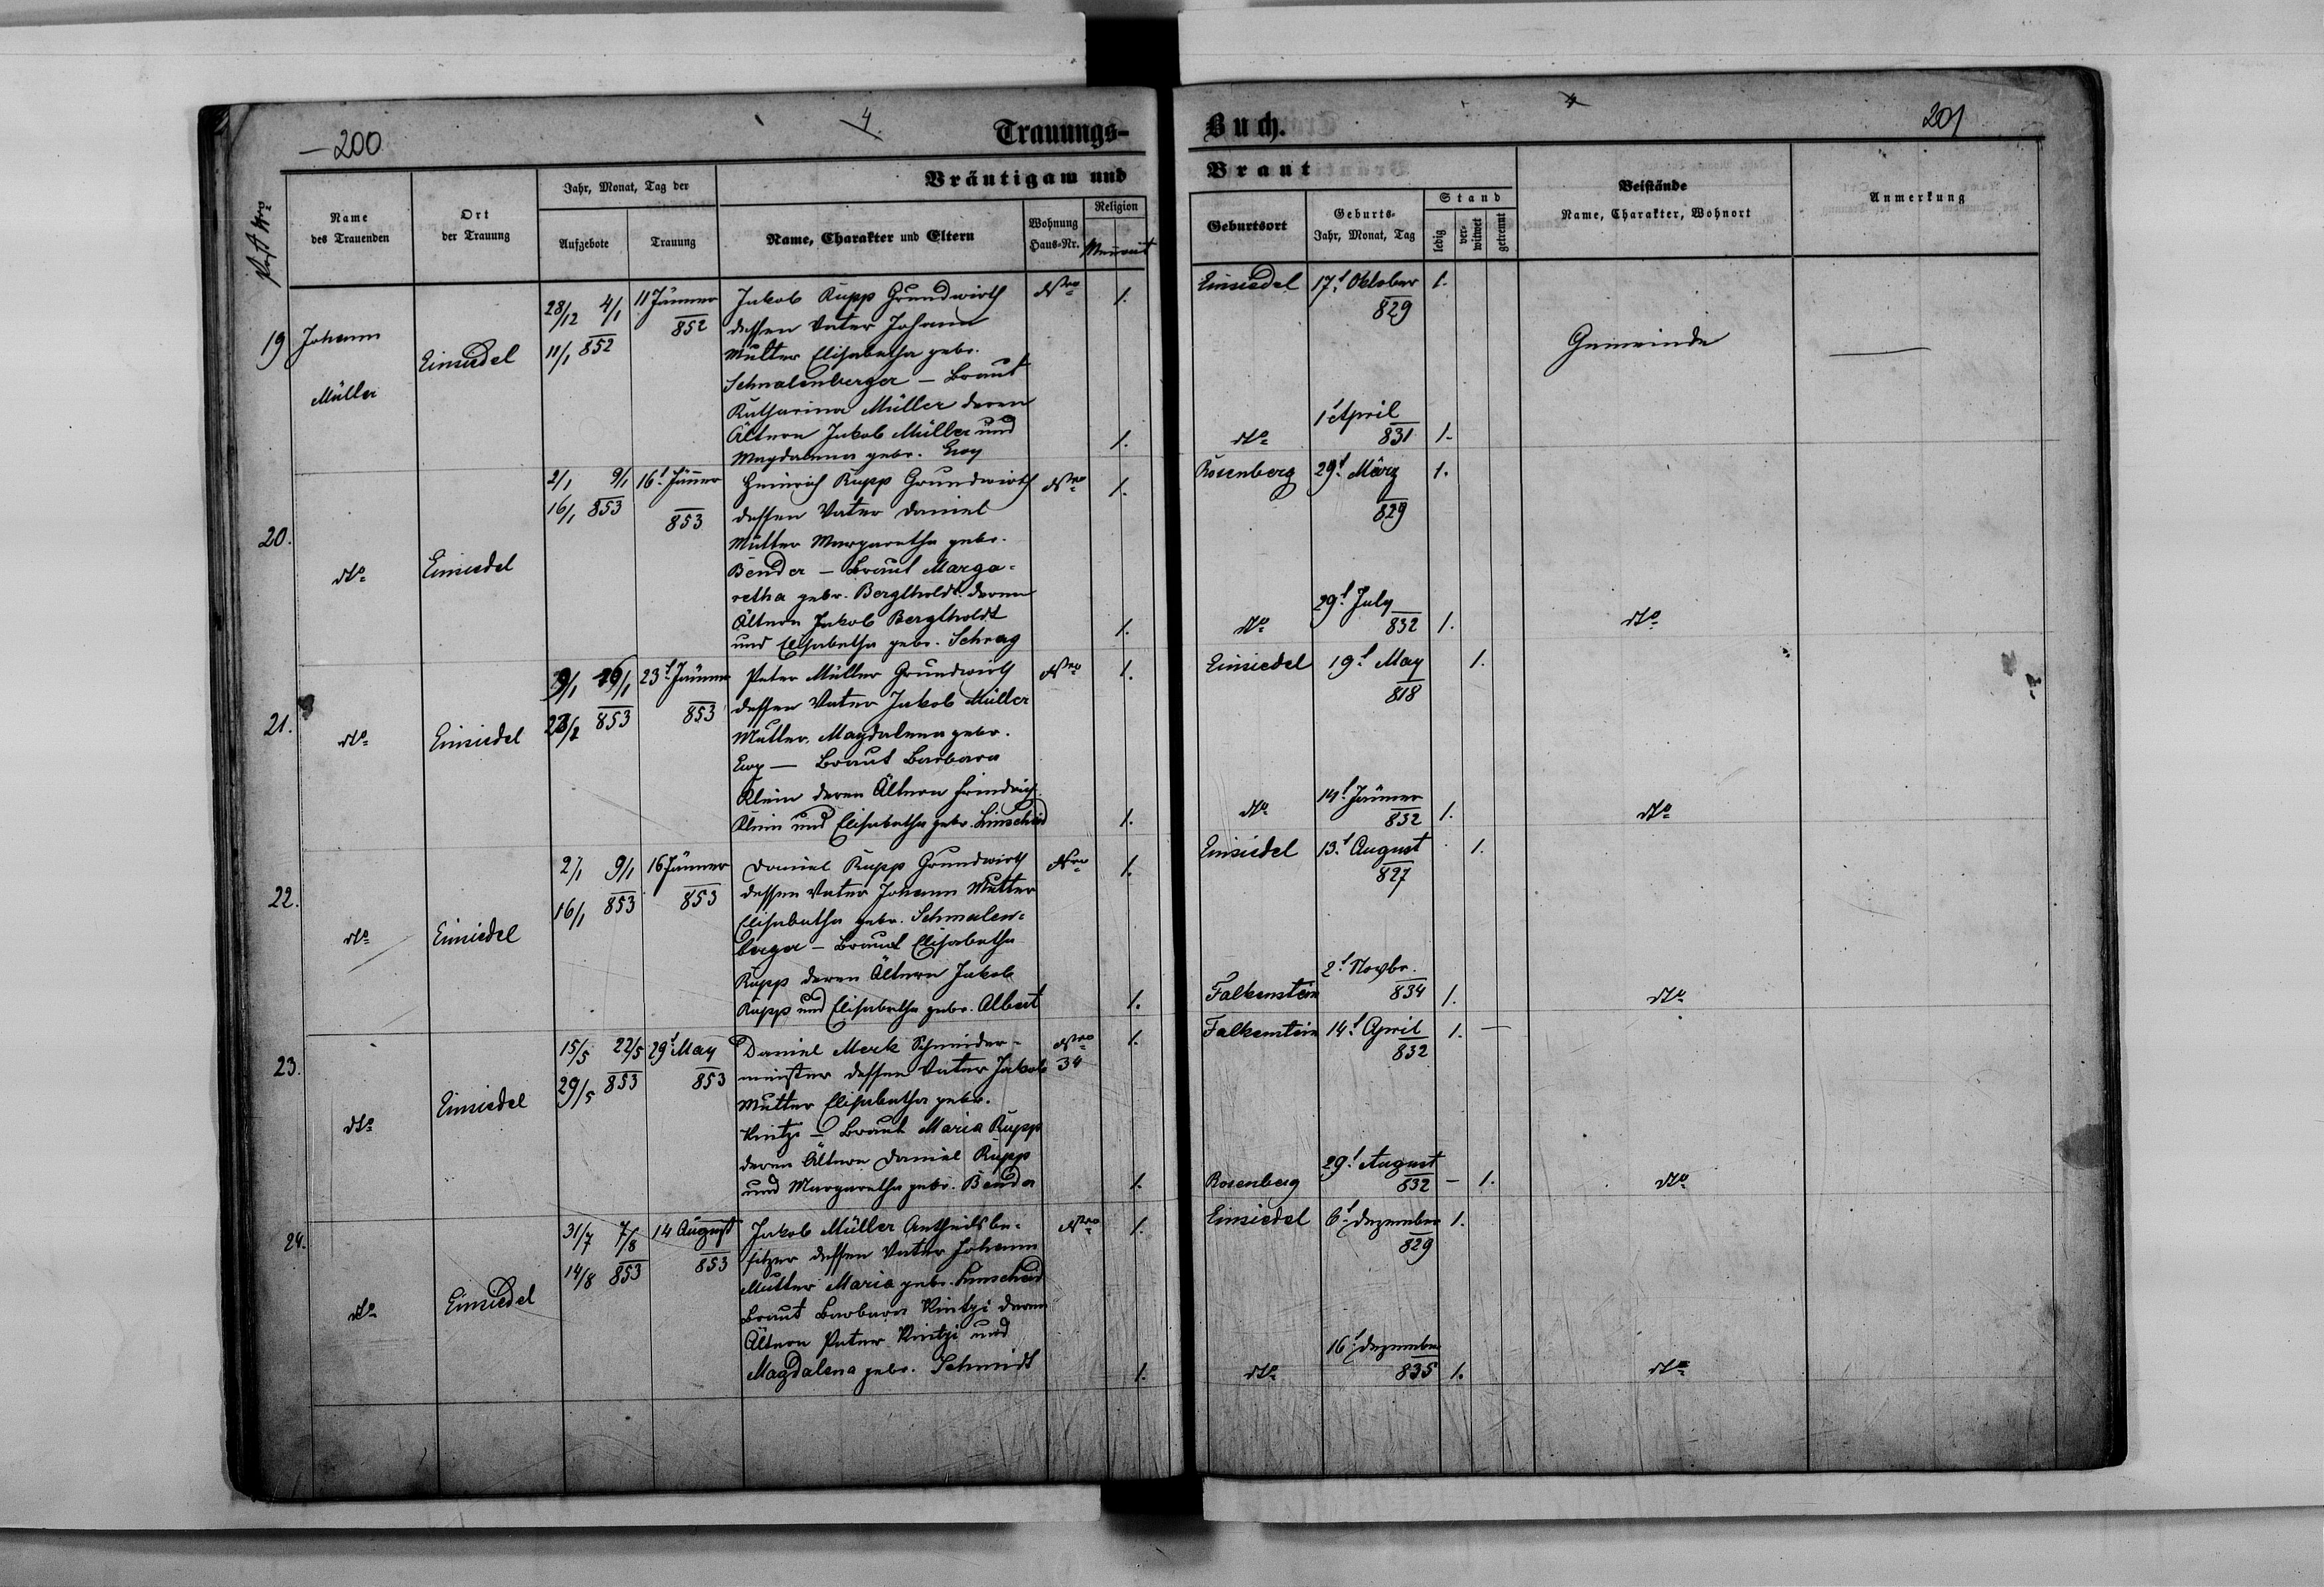 200
4
Trauungs-
Buch.
4
201
Post Nro
Name des Trauenden
Ort der Trauung
Jahr, Monat, Tag der
Aufgebote
Trauung
Bräutigam und
Name, Charakter und Eltern
Wohnung Haus-Nr.
Religion
Braut
Geburtsort
Geburts- Jahr, Monat, Tag
Stand
ledig
ver- witwet
getrennt
Beistände
Name, Charakter, Wohnort
Anmerkung
19 Johann Müller
Einsiedel
28/12 4/1
11/1 852
11 Jänner
852
Jakob Rupp Grundwirth
dessen Vater Johann
Mutter Elisabetha gebr.
Schmalenberger – Braut
Katharina Müller deren
Ältern Jakob Müller und
Magdalena gebr. Ewy
1.
1.
Einsiedel 17t Oktober 1.
829
dto 1t April
831 1.
Gemeinde
20.
dto
Einsiedel
2/1 9/1
16/1 853
16t Jänner
853
Heinrich Rupp Grundwirth
dessen Vater Daniel
Mutter Margaretha gebr.
Bender – Braut Marga-
retha gebr. Bergtholdt deren
Ältern Jakob Bergtholdt
und Elisabetha gebr. Schrag
1.
1.
Rosenberg 29t März 1.
829
dto 29t July
832 1.
dto
21.
dto
Einsiedel
853
23t Jänner
853
Peter Müller Grundwirth
dessen Vater Jakob Müller
Mutter Magdalena gebr.
Ewy — Braut Barbara
Klein deren Ältern Friedrich
Klein und Elisabetha gebr. Linscheid
1.
1.
Einsiedel 19t May 1.
818
dto 14t Jänner
832 1.
dto
22.
dto
Einsiedel
2/1 9/1
16/1 853
16 Jänner
853
Daniel Rupp Grundwirth
dessen Vater Johann Mutter
Elisabetha gebr. Schmalen-
berger – Braut Elisabetha
Rupp deren Ältern Jakob
Rupp und Elisabetha gebr. Albert
1.
1.
Einsiedel 13t August 1.
827
Falkenstein 2t Novbr.
834 1.
dto
23.
dto
Einsiedel
15/5 22/5
29/5 853
29t May
853
Daniel Merk Schneider-
meister dessen Vater Jakob
Mutter Elisabetha gebr.
Kintzi – Braut Maria Rupp
deren Ältern Daniel Rupp
und Margaretha gebr. Bender
34
1.
1.
Falkenstein 14t April 1. —
832
Rosenberg 29t August
832 – 1.
dto
24.
dto
Einsiedel
31/7 7/8
14/8 853
14 August
853
Jakob Müller Antheilsbe-
sitzer dessen Vater Johann
Mutter Maria gebr. Linscheid
Braut Barbara Kintzi deren
Ältern Peter Kintzi und
Magdalena gebr. Schmidt
1.
1.
Einsiedel 6t Dezember 1.
829
dto 16t Dezember
835 1.
dto